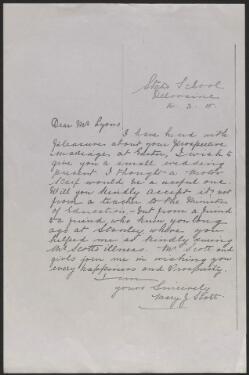 State School
Deloraine
10. 3. 15.
Dear Mr Lyons
I have heard with
pleasure about your prospective
marriage at Easter, I wish to
give you a small wedding
present I thought a
would be a useful one.
Will you kindly accept it, not
from a teacher to the Minister
of Education - but from a friend
to a friend, who knew you long
ago at Stanley where you
helped me so kindly during
Mr Scott's illness. Mr Scott and
girls join me in wishing you
every happiness and prosperity.
I am
yours Sincerely
Mary J Scott.